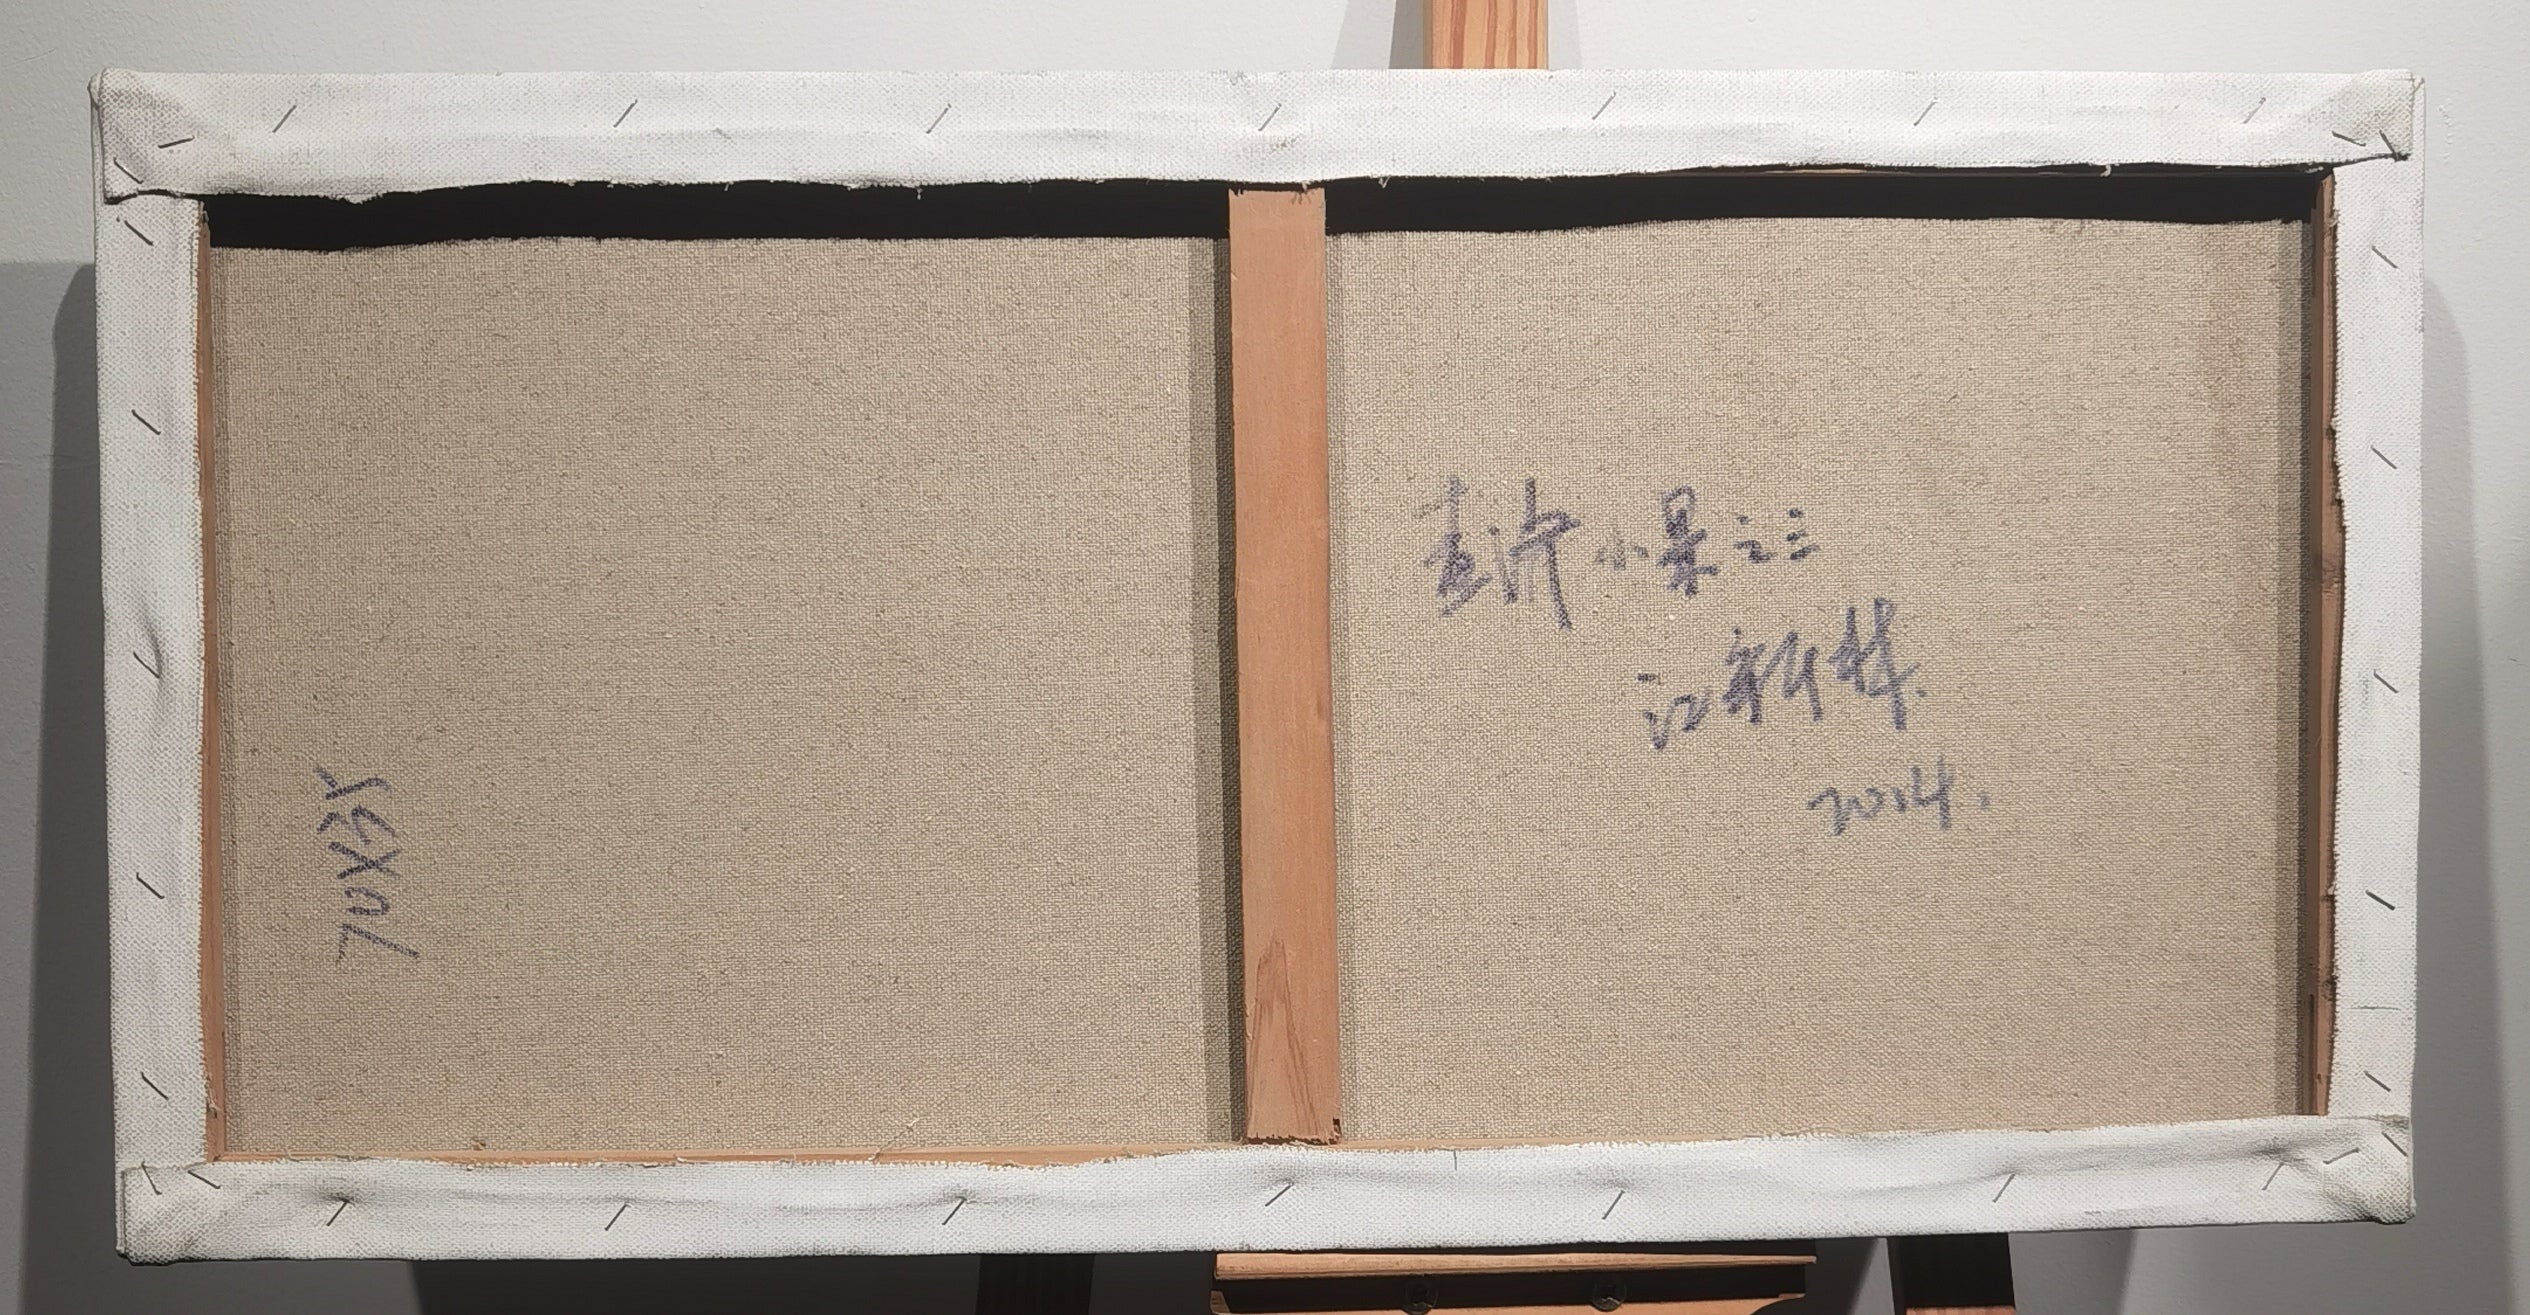 70X35
小景之三
江新林
2014.